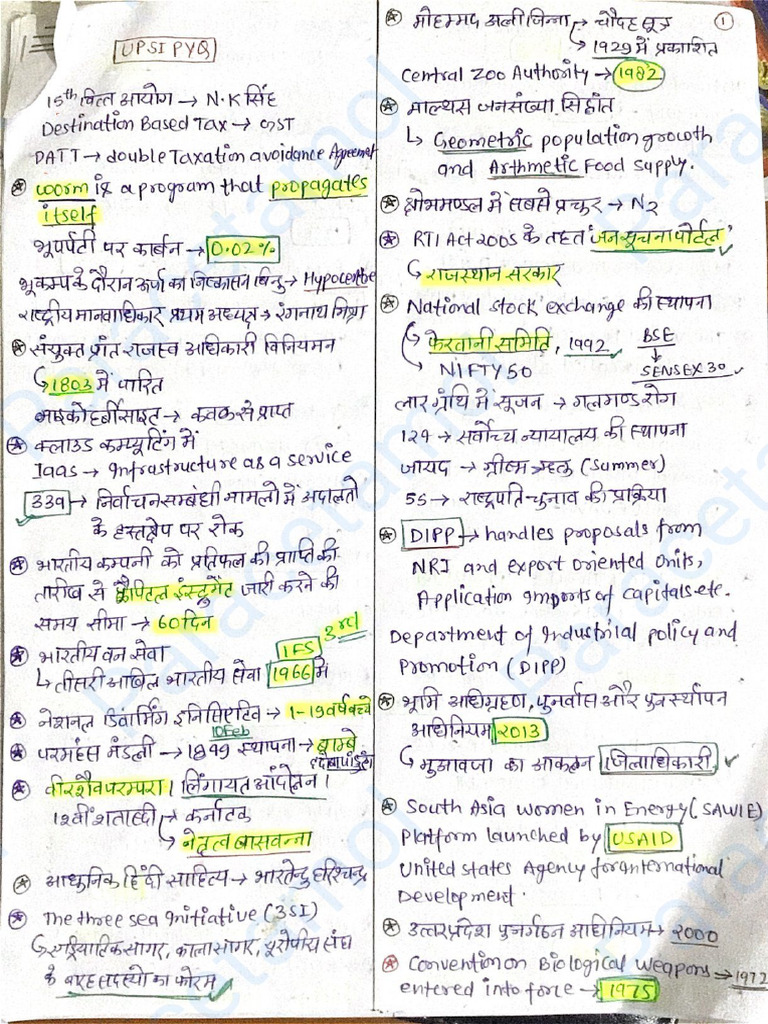 UPSI PYQ
15th वित्त आयोग → N.K सिंह
Destination Based Tax → GST
DATT → double Taxation avoidance Agreement
worm is a program that propagates
itself
भूपर्पटी पर कार्बन → 0.02%
भूकम्प के दौरान ऊर्जा का निष्कासन बिन्दु → Hypocentre
राष्ट्रीय मानवाधिकार प्रथम अध्यक्ष → रंगनाथ मिश्रा
संयुक्त प्रांत राजस्व अधिकारी विनियमन
1803 में पारित
माइकोहर्बीसाइड → कवक से प्राप्त
क्लाउड कम्प्यूटिंग में
Iaas → Infrastructure as a service
339 → निर्वाचन सम्बंधी मामलो में अदालतो
के हस्तक्षेप पर रोक
भारतीय कम्पनी को प्रतिफल की प्राप्ति की
तारीख से कैपिटल इंस्ट्रूमेंट जारी करने की
समय सीमा → 60 दिन
भारतीय वन सेवा IFS 3rd
तीसरी अखिल भारतीय सेवा 1966 में
नेशनल डिवार्मिंग इनिसिएटिव → 1-19 वर्ष बच्चे
10 Feb
परमहंस मंडली → 1849 स्थापना → बाम्बे
वीरशैव परम्परा। लिंगायत आंदोलन।
12वीं शताब्दी → कर्नाटक
→ नेतृत्व बासवन्ना
आधुनिक हिंदी साहित्य → भारतेन्दु हरिश्चन्द्र
The three sea Initiative (3SI)
एड्रियाटिक सागर, काला सागर, यूरोपीय संघ
के बारह सदस्यो का फोरम
1
मोहम्मद अली जिन्ना → चौदह सूत्र
→ 1929 में प्रकाशित
Central Zoo Authority → 1982
माल्थस जनसंख्या सिद्धांत
Geometric population growth
and Arthmetic Food supply.
क्षोभमण्डल में सबसे प्रचुर → N2
RTI Act 2005 के तहत 'जन सूचना पोर्टल'
राजस्थान सरकार
National stock exchange की स्थापना
फेरवानी समिति, 1992 BSE
NIFTY 50 SENSEX 30
लार ग्रंथि में सूजन → गलगण्ड रोग
124 → सर्वोच्च न्यायालय की स्थापना
जायद → ग्रीष्म ऋतु (Summer)
55 → राष्ट्रपति चुनाव की प्रक्रिया
DIPP → handles proposals from
NRI and export oriented Units,
Application imports of capitals etc.
Department of Industrial policy and
Promotion (DIPP)
भूमि अधिग्रहण, पुनर्वास और पुनर्स्थापन
अधिनियम 2013
मुआवजा का आकलन जिलाधिकारी
South Asia women in Energy (SAWIE)
Platform launched by USAID
United states Agency for international
Development.
उत्तरप्रदेश पुनर्गठन अधिनियम → 2000
Convention on Biological weapons → 1972
entered into force → 1975
Paracetamol